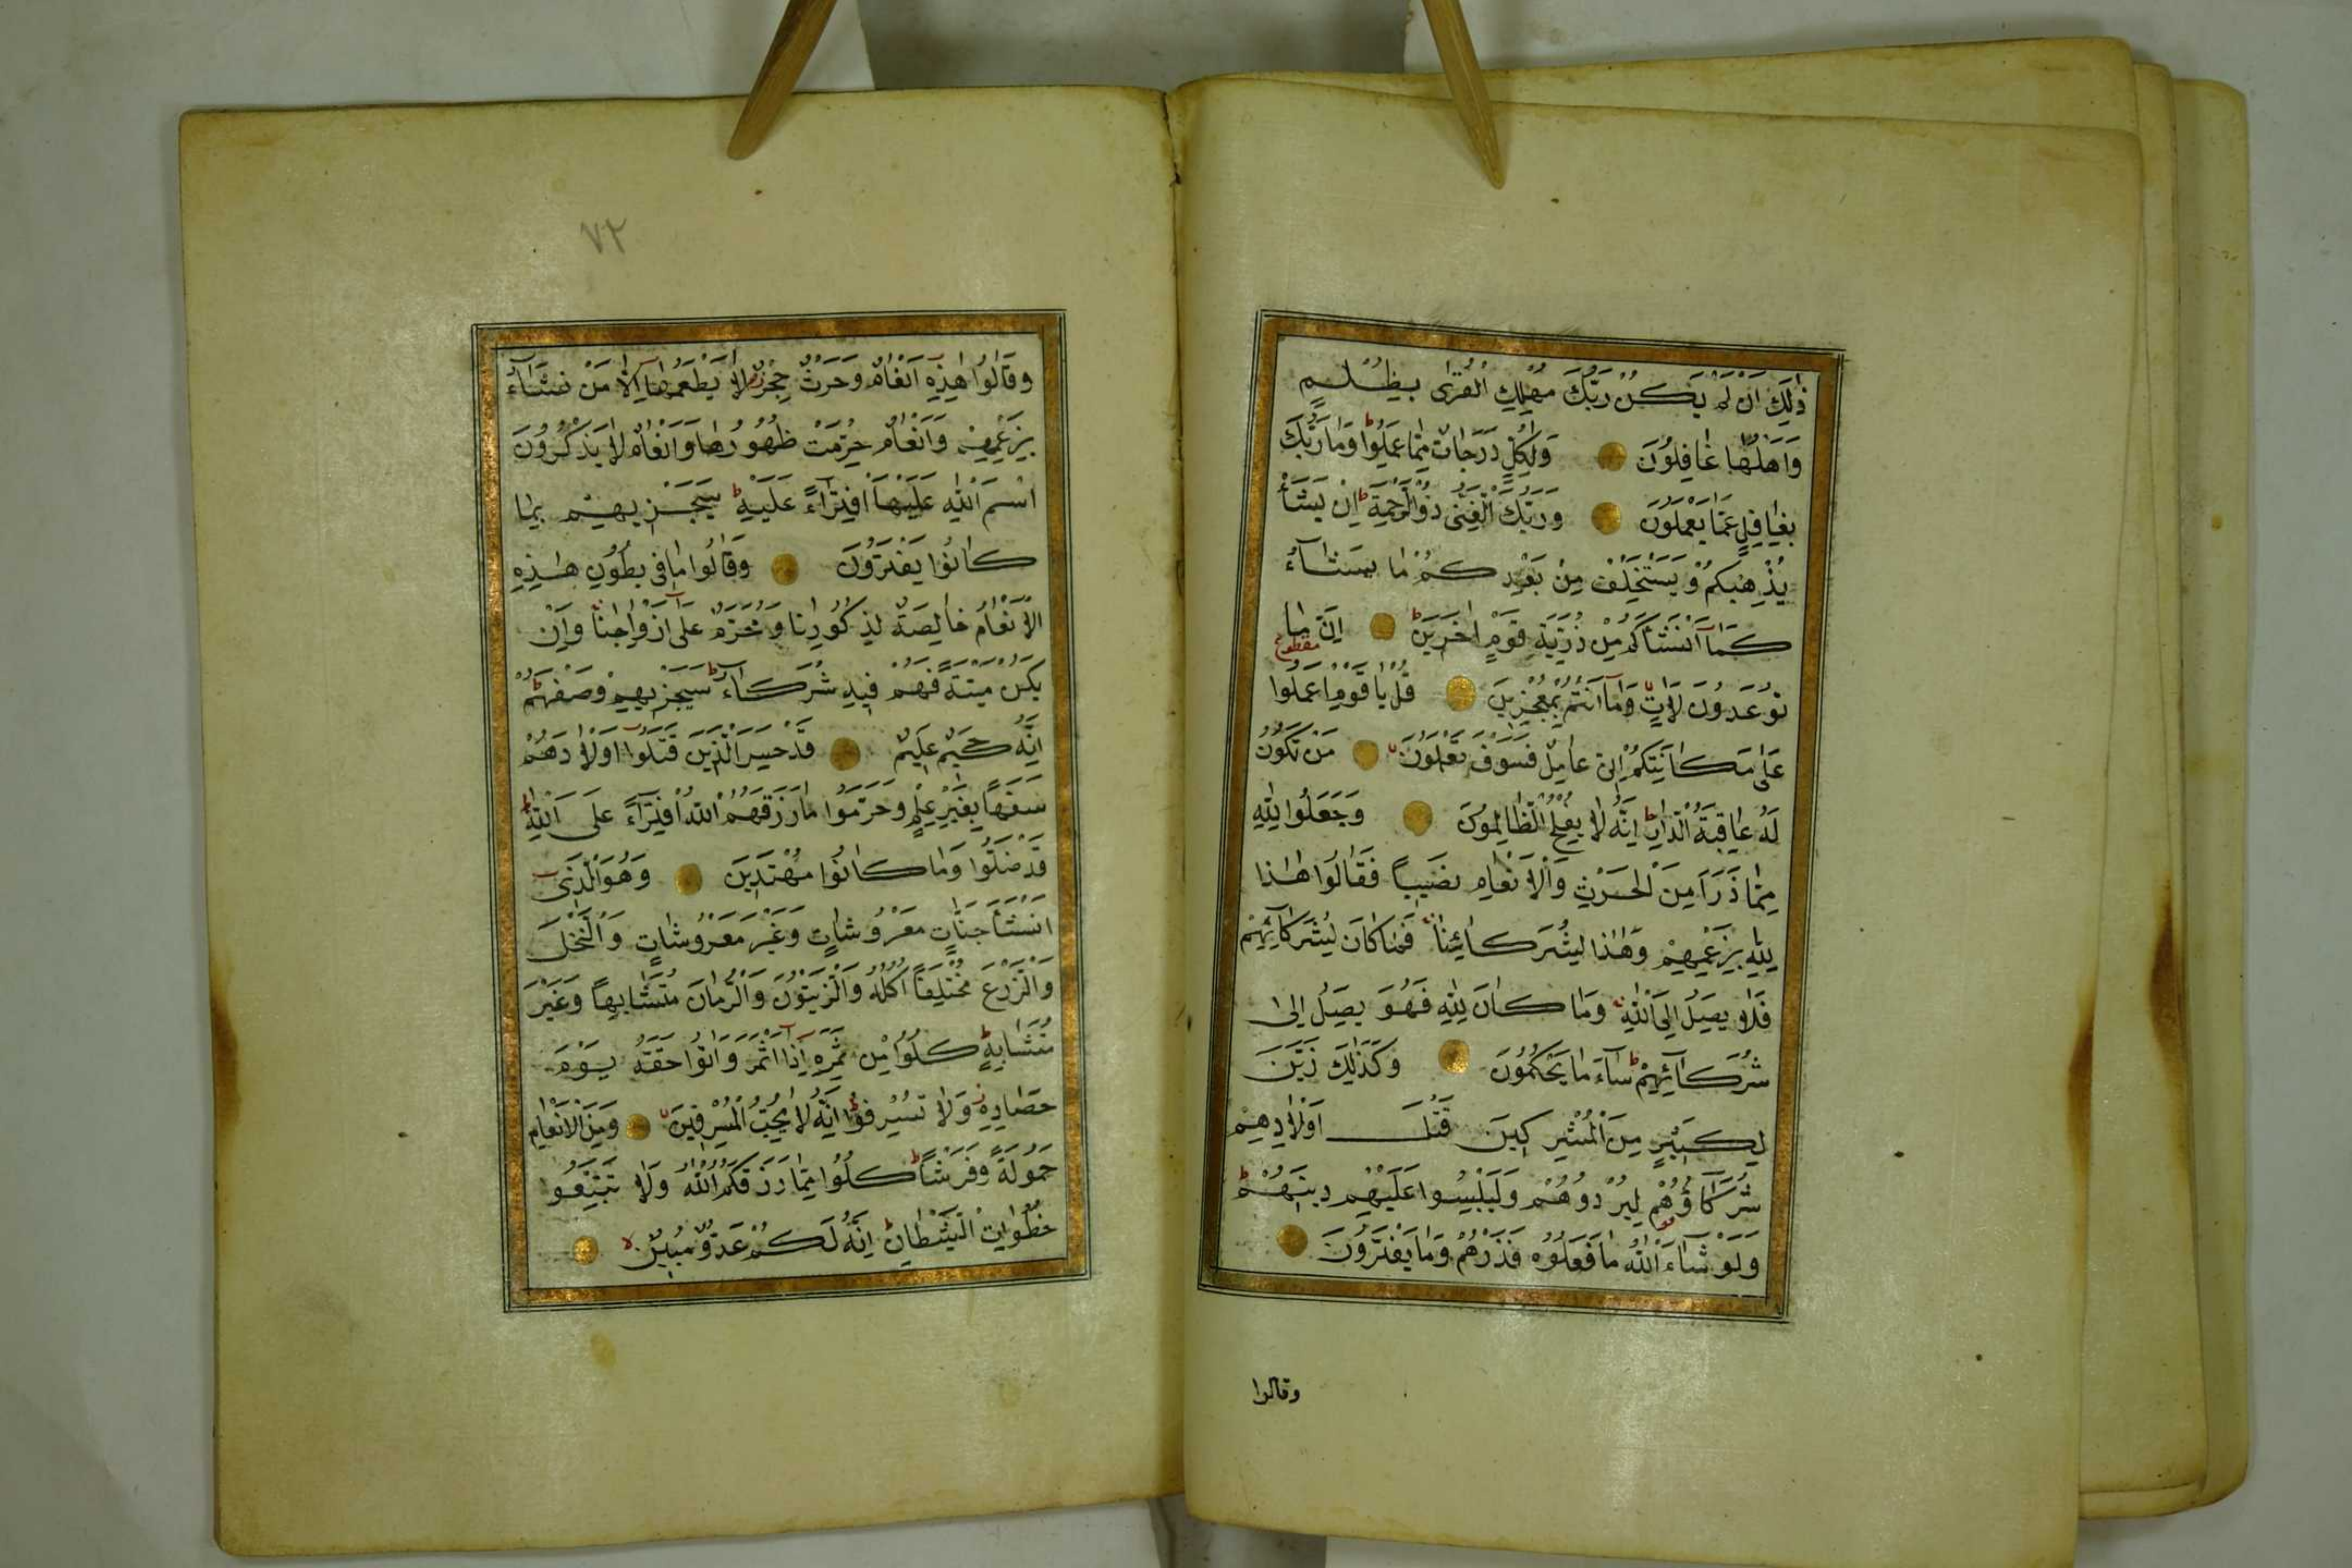 ذٰلِكَ اَنْ لَمْ يَكُنْ رَبُّكَ مُهْلِكَ الْقُرٰى بِظُلْمٍ
وَاَهْلُهَا غَافِلُونَ وَلِكُلٍّ دَرَجَاتٌ مِمَّا عَمِلُوا وَمَا رَبُّكَ
بِغَافِلٍ عَمَّا يَعْمَلُونَ وَرَبُّكَ الْغَنِىُّ ذُو الرَّحْمَةِ اِنْ يَشَأْ
يُذْهِبْكُمْ وَيَسْتَخْلِفْ مِنْ بَعْدِكُمْ مَا يَشَاءُ
كَمَا اَنْشَأَكُمْ مِنْ ذُرِّيَّةِ قَوْمٍ اٰخَرِينَ اِنَّ مَا
مقطوع
تُوعَدُونَ لَاٰتٍ وَمَا اَنْتُمْ بِمُعْجِزِينَ قُلْ يَا قَوْمِ اعْمَلُوا
عَلٰى مَكَانَتِكُمْ اِنّى عَامِلٌ فَسَوْفَ تَعْلَمُونَ مَنْ تَكُونُ
لَهُ عَاقِبَةُ الدَّارِ اِنَّهُ لَا يُفْلِحُ الظَّالِمُونَ وَجَعَلُوا لِلّٰهِ
مِمَّا ذَرَاَ مِنَ الْحَرْثِ وَالْاَنْعَامِ نَصِيبًا فَقَالُوا هٰذَا
لِلّٰهِ بِزَعْمِهِمْ وَهٰذَا لِشُرَكَائِنَا فَمَا كَانَ لِشُرَكَائِهِمْ
فَلَا يَصِلُ اِلَى اللّٰهِ وَمَا كَانَ لِلّٰهِ فَهُوَ يَصِلُ اِلٰى
شُرَكَائِهِمْ سَاءَ مَا يَحْكُمُونَ وَكَذٰلِكَ زَيَّنَ
لِكَثِيرٍ مِنَ الْمُشْرِكِينَ قَتْلَ اَوْلَادِهِمْ
شُرَكَاؤُهُمْ لِيُرْدُوهُمْ وَلِيَلْبِسُوا عَلَيْهِمْ دِينَهُمْ
وَلَوْ شَاءَ اللّٰهُ مَا فَعَلُوهُ فَذَرْهُمْ وَمَا يَفْتَرُونَ
وقالوا
٧٢
وَقَالُوا هٰذِهِ اَنْعَامٌ وَحَرْثٌ حِجْرٌ لَا يَطْعَمُهَا اِلَّا مَنْ نَشَاءُ
بِزَعْمِهِمْ وَاَنْعَامٌ حُرِّمَتْ ظُهُورُهَا وَاَنْعَامٌ لَا يَذْكُرُونَ
اسْمَ اللّٰهِ عَلَيْهَا افْتِرَاءً عَلَيْهِ سَيَجْزِيهِمْ بِمَا
كَانُوا يَفْتَرُونَ وَقَالُوا مَا فِى بُطُونِ هٰذِهِ
الْاَنْعَامِ خَالِصَةٌ لِذُكُورِنَا وَمُحَرَّمٌ عَلٰى اَزْوَاجِنَا وَاِنْ
يَكُنْ مَيْتَةً فَهُمْ فِيهِ شُرَكَاءُ سَيَجْزِيهِمْ وَصْفَهُمْ
اِنَّهُ حَكِيمٌ عَلِيمٌ قَدْ خَسِرَ الَّذِينَ قَتَلُوا اَوْلَادَهُمْ
سَفَهًا بِغَيْرِ عِلْمٍ وَحَرَّمُوا مَا رَزَقَهُمُ اللّٰهُ افْتِرَاءً عَلَى اللّٰهِ
قَدْ ضَلُّوا وَمَا كَانُوا مُهْتَدِينَ وَهُوَ الَّذِى
اَنْشَاَ جَنَّاتٍ مَعْرُوشَاتٍ وَغَيْرَ مَعْرُوشَاتٍ وَالنَّخْلَ
وَالزَّرْعَ مُخْتَلِفًا اُكُلُهُ وَالزَّيْتُونَ وَالرُّمَّانَ مُتَشَابِهًا وَغَيْرَ
مُتَشَابِهٍ كُلُوا مِنْ ثَمَرِهِ اِذَا اَثْمَرَ وَاٰتُوا حَقَّهُ يَوْمَ
حَصَادِهِ وَلَا تُسْرِفُوا اِنَّهُ لَا يُحِبُّ الْمُسْرِفِينَ وَمِنَ الْاَنْعَامِ
حَمُولَةً وَفَرْشًا كُلُوا مِمَّا رَزَقَكُمُ اللّٰهُ وَلَا تَتَّبِعُوا
خُطُوَاتِ الشَّيْطَانِ اِنَّهُ لَكُمْ عَدُوٌّ مُبِينٌ